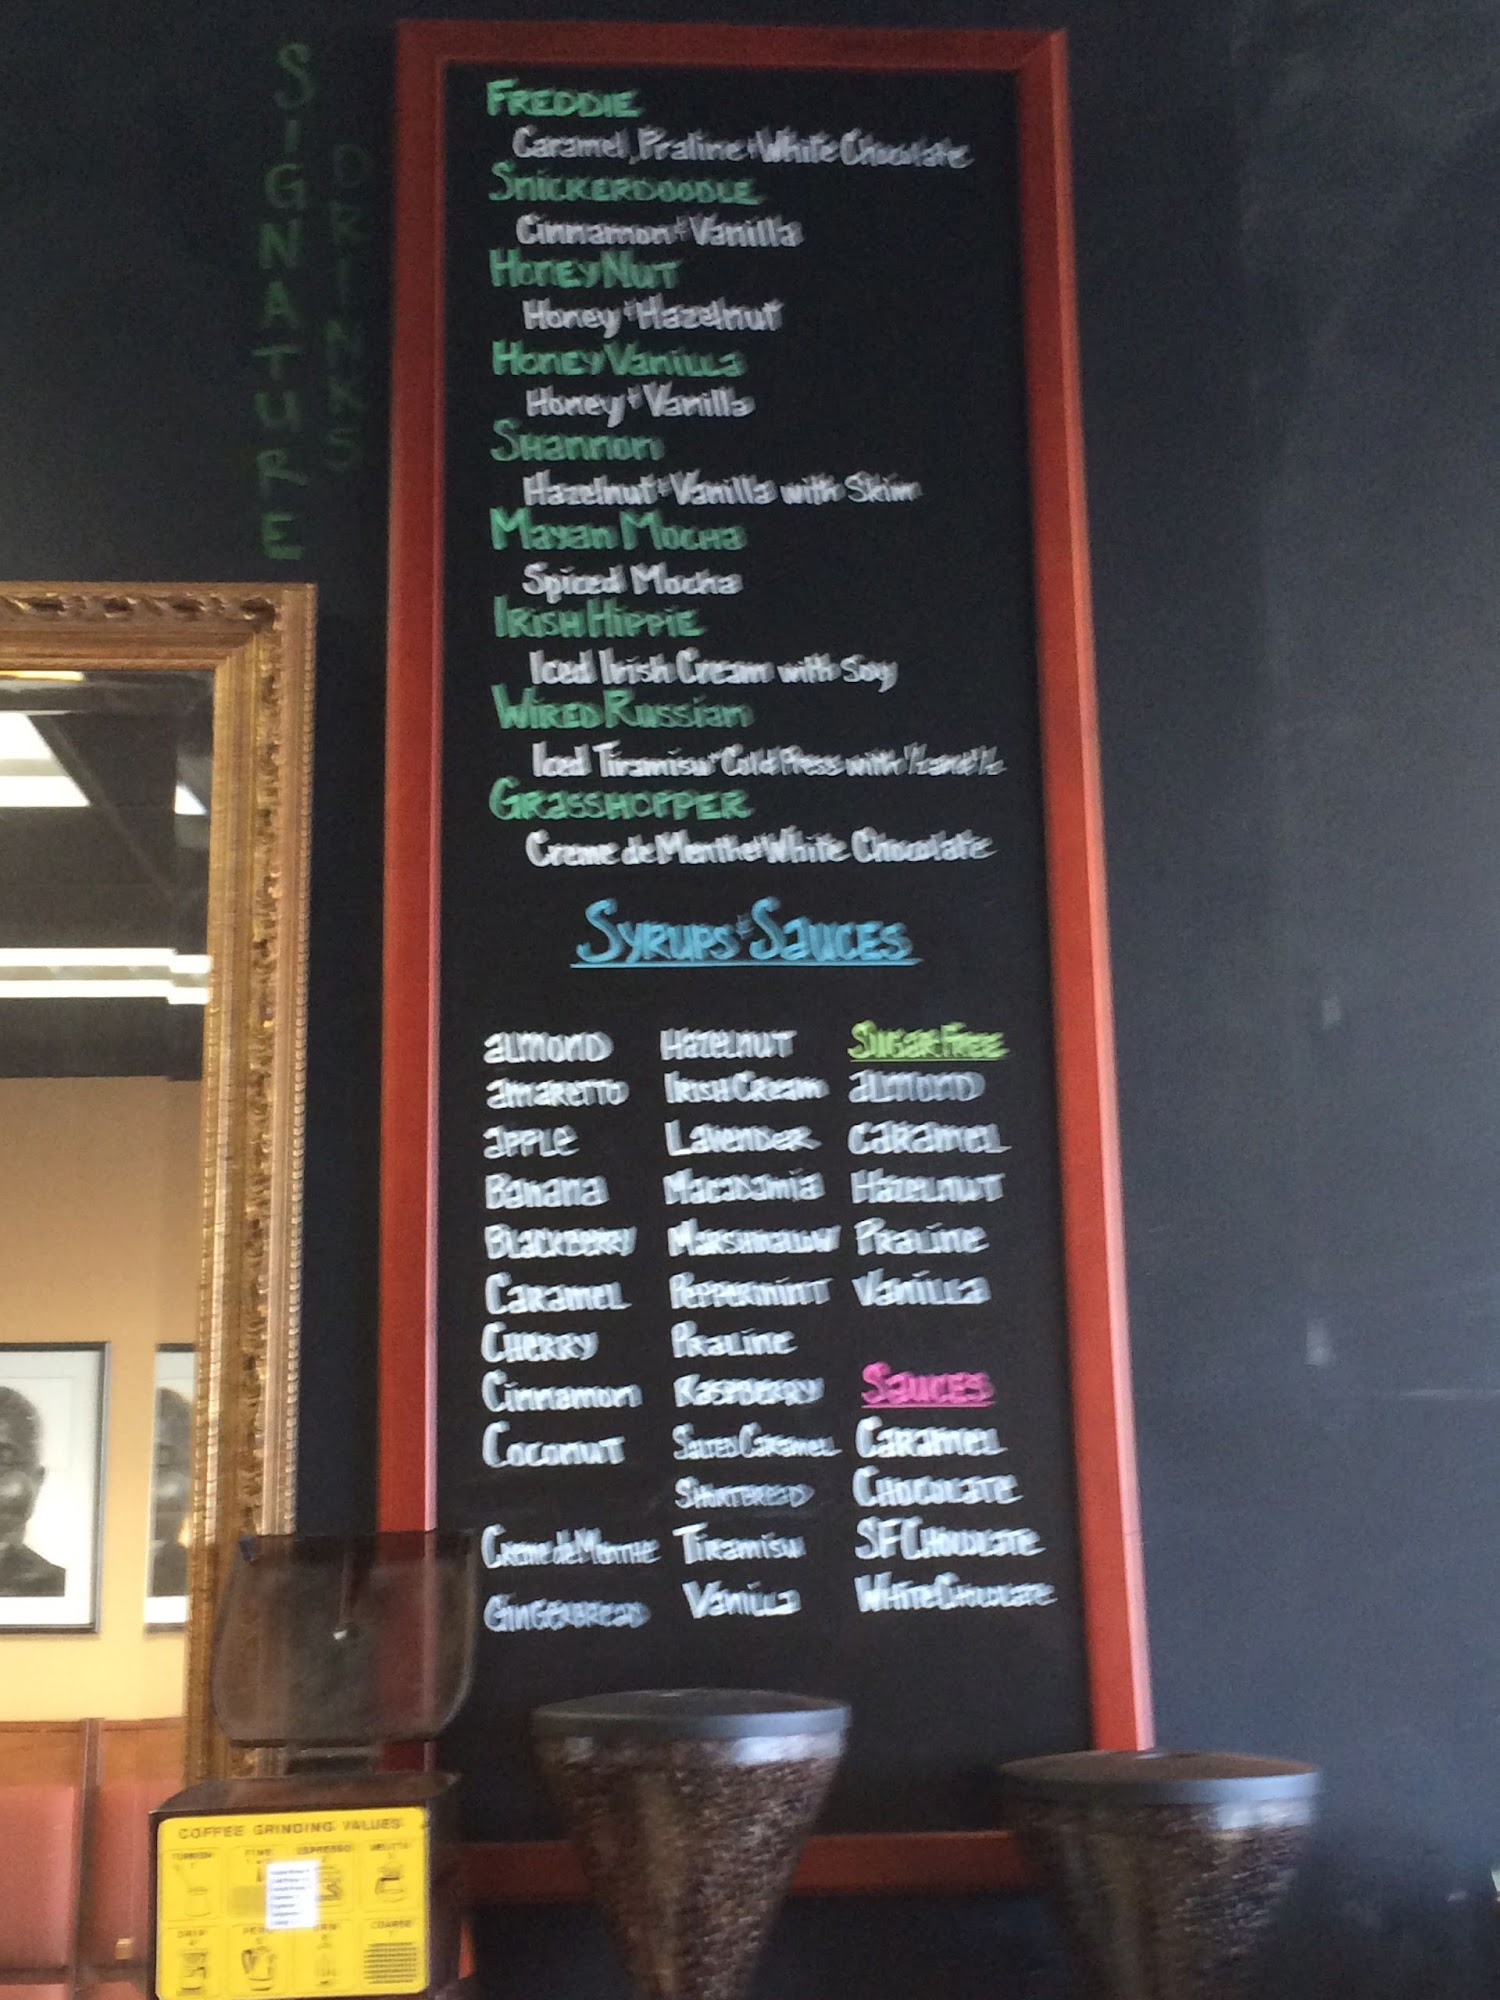 SIGNATURE
DRINKS
FREDDIE
Caramel, Praline & White Chocolate
SNICKERDOODLE
Cinnamon & Vanilla
HONEY NUT
Honey & Hazelnut
HONEY VANILLA
Honey & Vanilla
SHANNON
Hazelnut & Vanilla with Skim
MAYAN MOCHA
Spiced Mocha
IRISH HIPPIE
Iced Irish Cream with Soy
WIRED RUSSIAN
Iced Tiramisu & Cold Press with ½ and ½
GRASSHOPPER
Creme de Menthe & White Chocolate
SYRUPS & SAUCES
ALMOND
AMARETTO
APPLE
BANANA
BLACKBERRY
CARAMEL
CHERRY
CINNAMON
COCONUT
CREME de MENTHE
GINGERBREAD
HAZELNUT
IRISH CREAM
LAVENDER
MACADAMIA
MARSHMALLOW
PEPPERMINT
PRALINE
RASPBERRY
SALTED CARAMEL
SHORTBREAD
TIRAMISU
VANILLA
SUGAR FREE
ALMOND
CARAMEL
HAZELNUT
PRALINE
VANILLA
SAUCES
CARAMEL
CHOCOLATE
SF CHOCOLATE
WHITE CHOCOLATE
COFFEE GRINDING VALUES
TURKISH FINE ESPRESSO MELITTA
DRIP COARSE